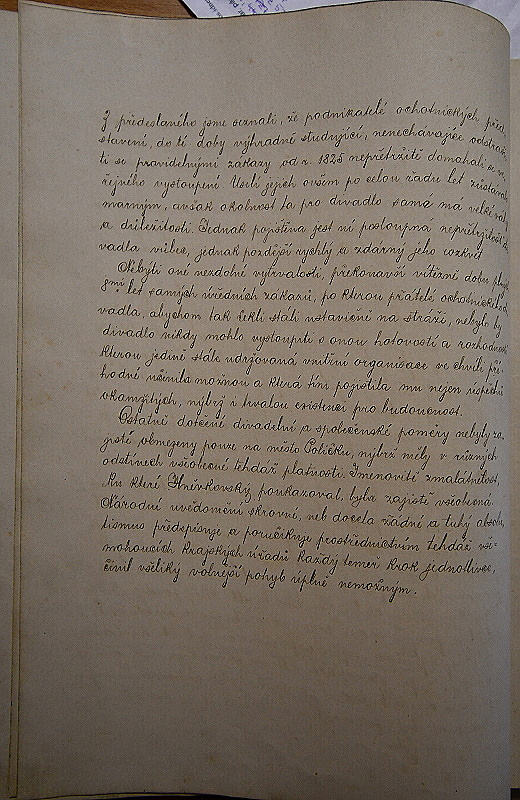 Z předeslaného jsme seznali, že podnikatelé ochotnických před-
stavení, do té doby výhradně studující, nenechávajíce odstraši-
ti se pravidelnými zákazy od r. 1825 nepřetržitě domáhali se ve-
řejného vystoupení. Úsilí jejich ovšem po celou řadu let zůstávalo
marným, avšak okolnost ta pro divadlo samo má velké váhy
a důležitosti. Jednak pojištěna jest ní postoupná nepřetržitost di-
vadla vůbec, jednak pozdější rychlý a zdárný jeho rozkvět.
Nebýti oné nezdolné vytrvalosti, překonavší vítězně dobu
let samých úředních zákazů, po kterou přátelé ochotnického di-
vadla, abychom tak řekli stáli ustavičně na stráži, nebylo by
divadlo nikdy mohlo vystoupiti s onou hotovostí a rozhodností
kterou jedině stále udržovaná vnitřní organisace ve chvíli pří-
hodné učinila možnou a která tím pojistila mu nejen úspěchů
okamžitých, nýbrž i trvalou existenci pro budoucnost.
Ostatně dotčené divadelní a společenské poměry nebyly za-
jisté obmezeny pouze na město Poličku, nýbrž měly v různých
odstínech všeobecné tehdáž platnosti. Jmenovitě zmalátnělost,
ku které Hněvkovský poukazoval, byla zajisté všeobecná.
Národní uvědomění skrovné, neb docela žádné a tuhý absolu-
tismus předepisuje a poručíkuje prostřednictvím tehdáž vše-
mohoucích krajských úřadů každý téměř krok jednotlivce,
činil všeliký volnější pohyb úplně nemožným.